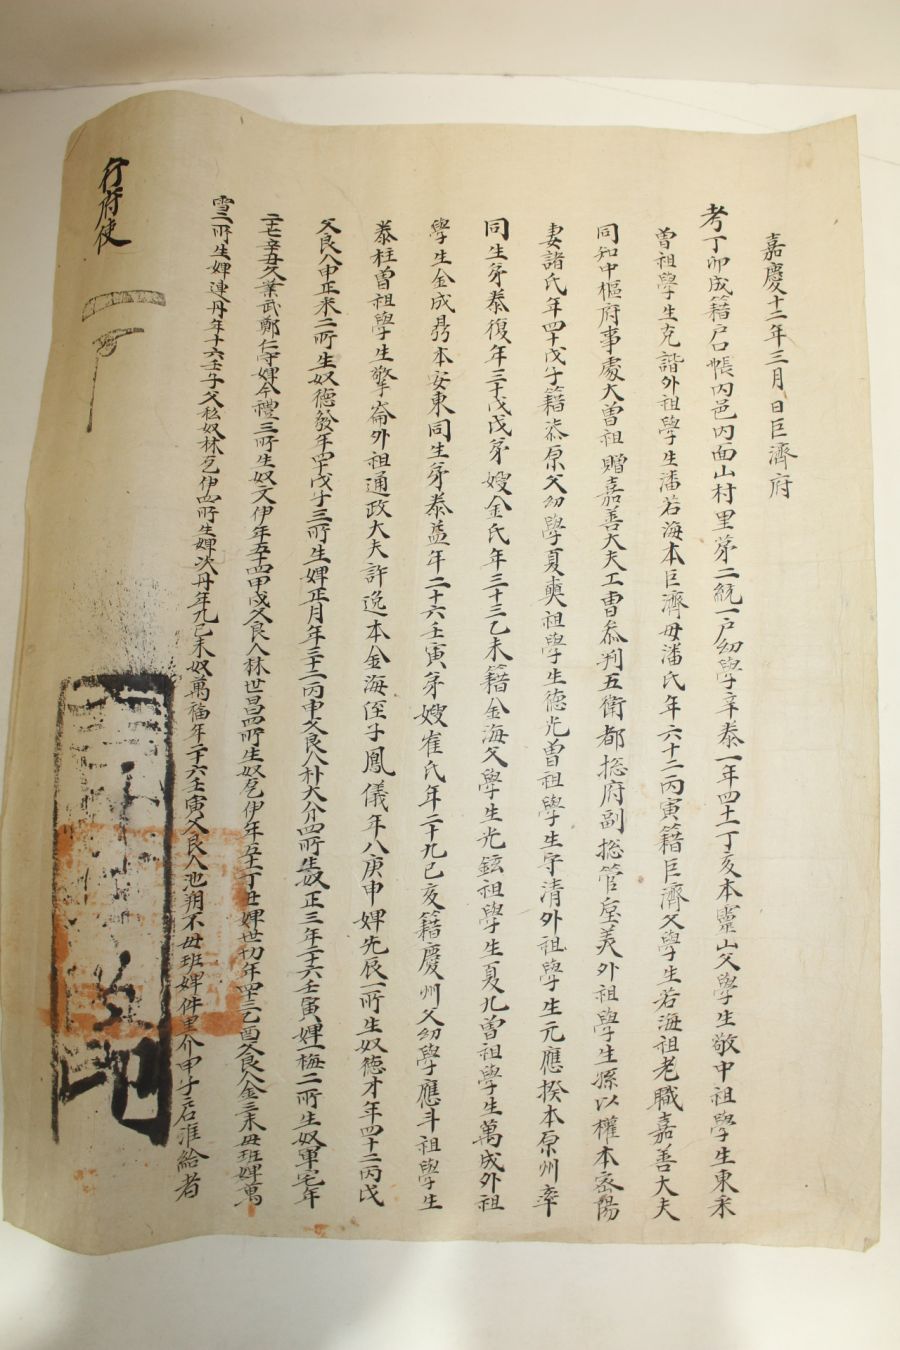 嘉慶十二年三月 日巨濟府
考丁卯成籍戶口帳內邑內面山村里第二統一戶幼學辛泰一年四十一丁亥本靈山父學生敬中祖學生東采
曾祖學生克諧外祖學生潘若海本巨濟母潘氏年六十二丙寅籍巨濟父學生若海祖老職嘉善大夫
同知中樞府事處大曾祖贈嘉善大夫工曹參判五衛都摠府副摠管 美外祖學生孫以權本密陽
妻諸氏年四十戊子籍柒原父幼學夏 祖學生德光曾祖學生守清外祖學生元應揆本原州率
同生弟泰復年三十戊戌弟嫂金氏年三十三乙未籍金海父學生光鉉祖學生夏九曾祖學生萬成外祖
學生金成鼎本安東同生弟泰益年二十六壬寅弟嫂崔氏年二十九己亥籍慶州父幼學應斗祖學生
泰柱曾祖學生擎崙外祖通政大夫許逸本金海侄子鳳儀年八庚申婢先辰一所生奴德才年四十二丙戌
父良人申正米二所生奴德發年四十戊子三所生婢正月年三十二丙申父良人朴大介四所生奴正三年二十六壬寅婢一梅二所生奴軍宅年
二十七辛丑父業武鄭仁守婢今禮三所生奴文伊年五十四甲戌父良人林世昌四所生奴 伊年五十一丁丑婢世切年四十三乙酉父良人金三末母班婢萬
雪二所生婢連丹年十六壬子父私奴林 伊四所生婢次丹年九己未奴萬福年二十六壬寅父良人池朔不母班婢件里介甲子 准給者
行府使